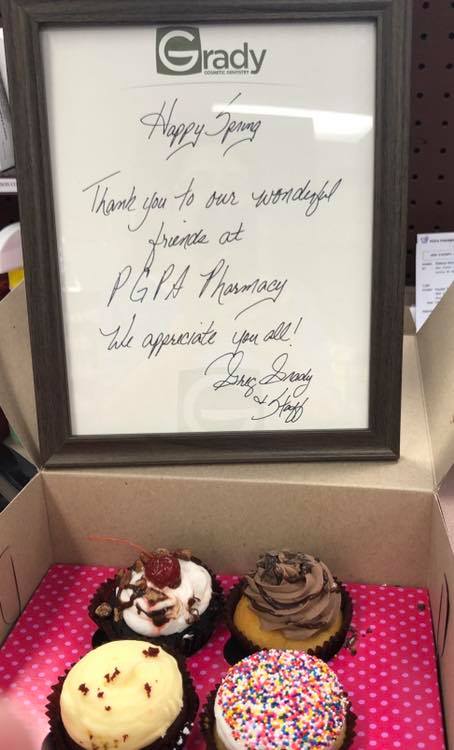 Grady
COSMETIC DENTISTRY
Happy Spring
Thank you to our wonderful
friends at
PGPA Pharmacy
We appreciate you all!
Greg Grady
+ Staff